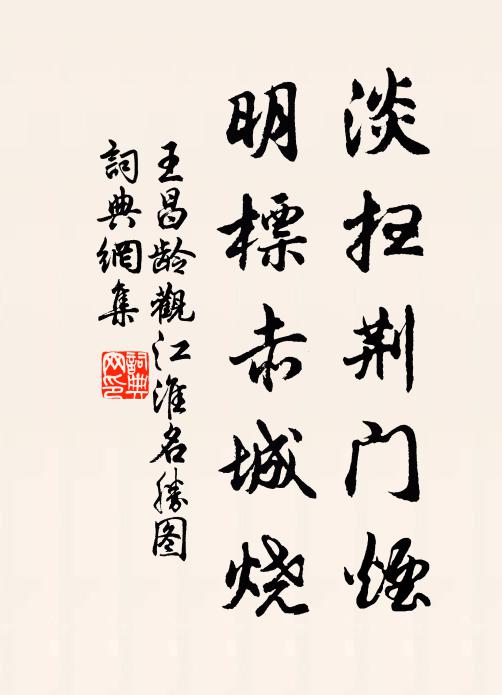 淡扫荆门煙
明標赤城烧
王昌龄觀江淮名勝图
詞典網集
詞典网印